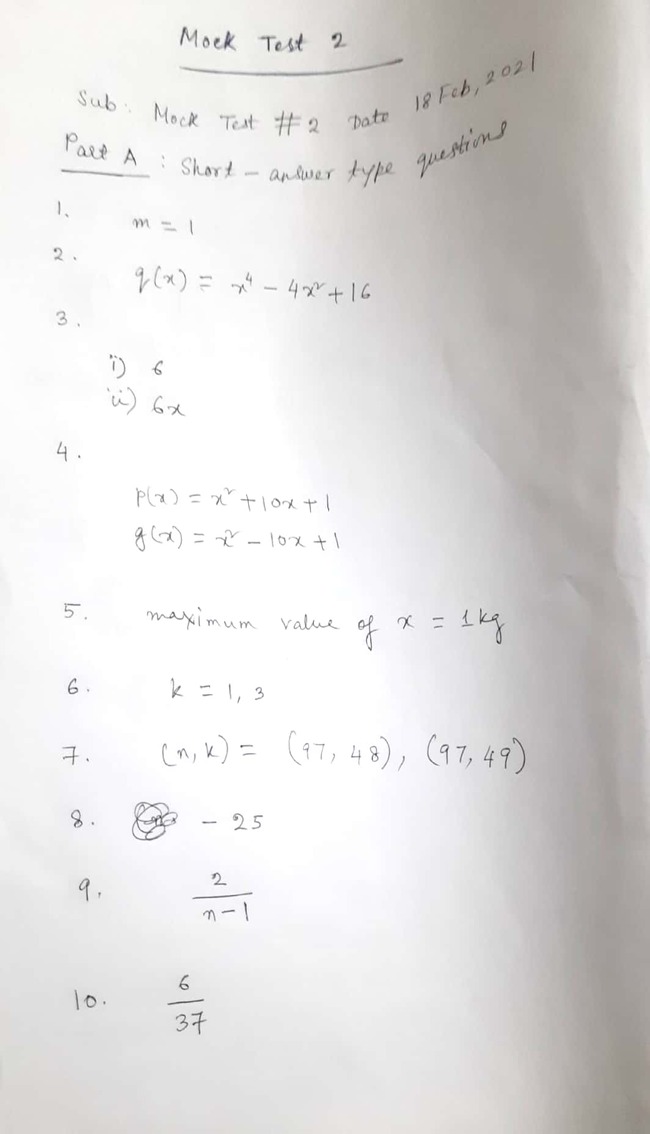 Mock Test 2
Sub: Mock Test #2 Date 18 Feb, 2021
Part A : Short - answer type questions
1. m = 1
2. q(x) = x⁴ - 4x² + 16
3.
i) 6
ii) 6x
4.
p(x) = x² + 10x + 1
g(x) = x² - 10x + 1
5. maximum value of x = 1 kg
6. k = 1, 3
7. (n, k) = (97, 48), (97, 49)
8. - 25
9. 2/(n-1)
10. 6/37